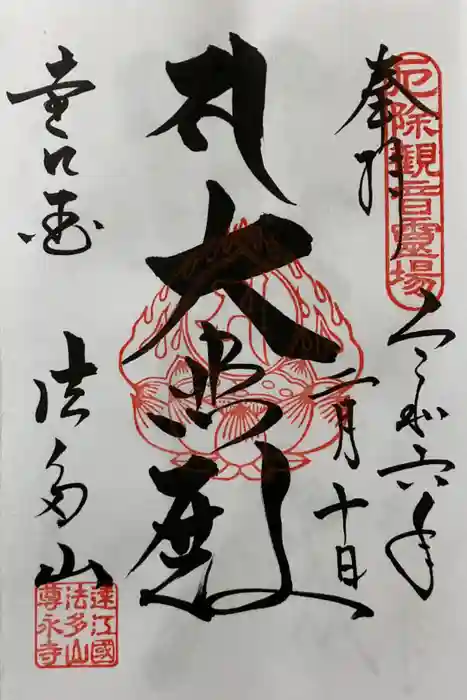 奉拝
厄除観音霊場
令和六年
二月十日
大悲殿
遠江国
法多山
遠江國
法多山
尊永寺